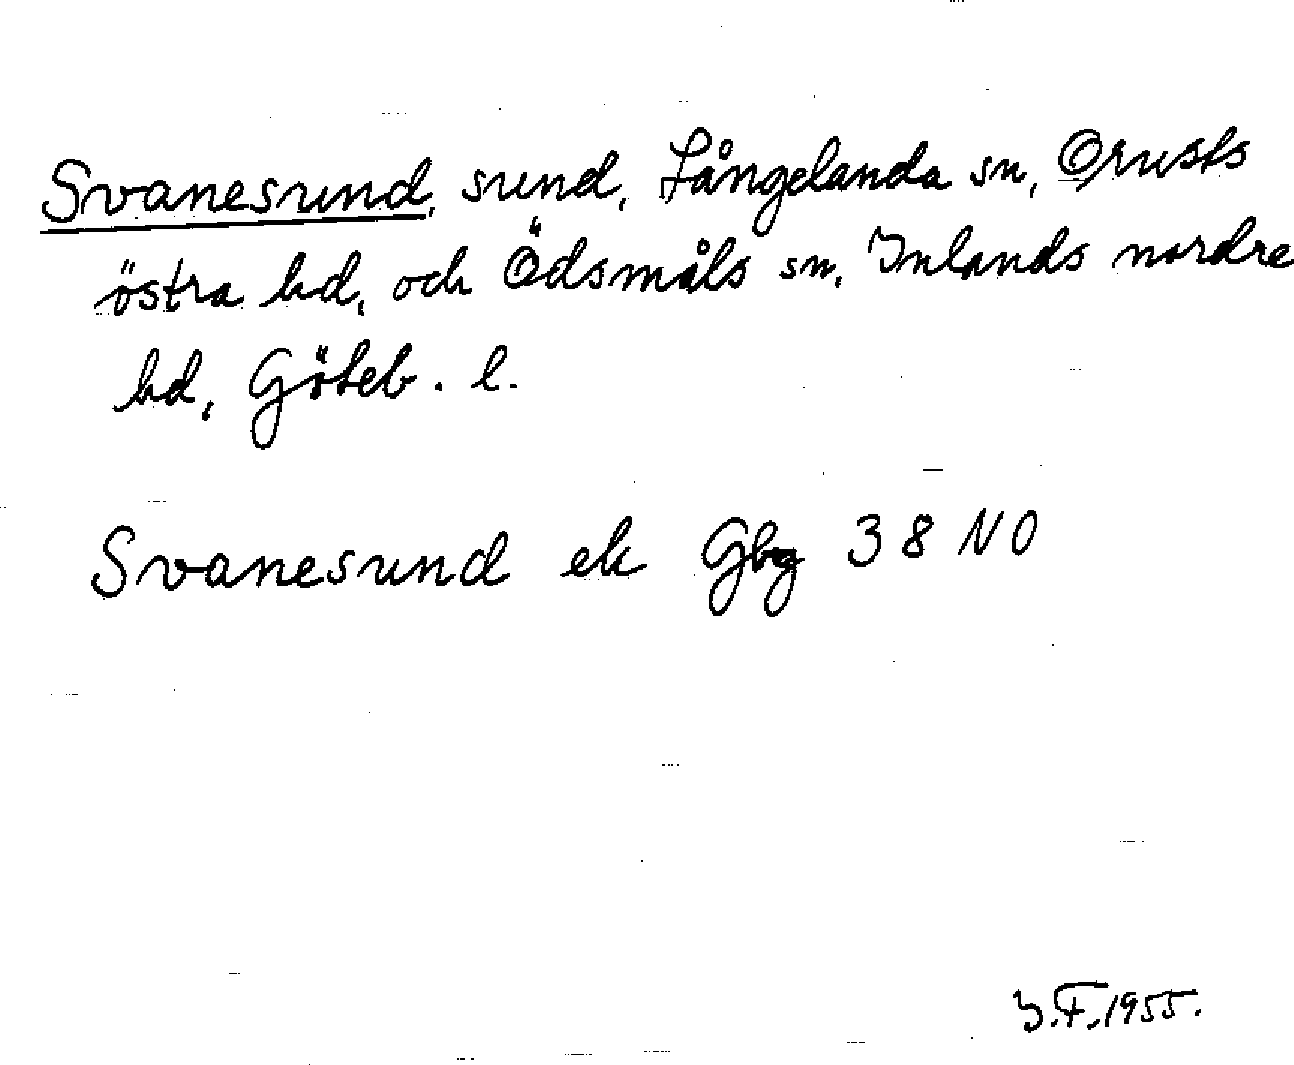 Svanesund, sund, Långelanda sn, Orusts
östra hd, och Ödsmåls sn, Inlands nordre
hd, Göteb. l.
Svanesund ek Gbg 38 NO
J.F. 1955.